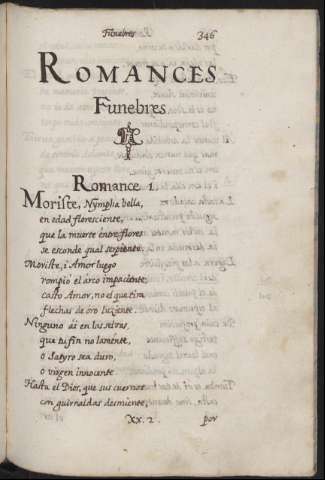 Funebres 346
ROMANCES
Funebres
Romance 1.
Moriste, Nympha bella,
en edad floresciente,
que la muerte entre flores
se esconde qual serpiente.
Moriste, i Amor luego
rompio el arco impaciente;
casto Amor, no el que tira
flechas de oro luziente.
Ninguno ai en las selvas,
que tu fin no lamente,
o Satyro sea duro,
o virgen innocente.
Hasta el Dios, que sus cuernos
con guirnaldas desmiente,
XX. 2. por